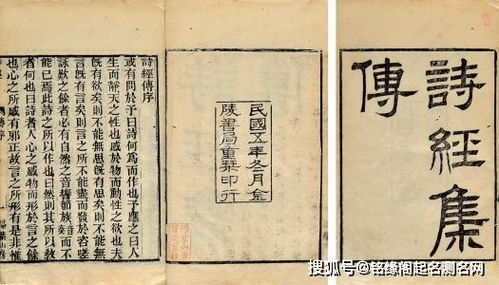 詩經集
傳
民國五年冬月金
陵書局重栞印行
詩經傳序
或有問於予曰詩何為而作也予應之曰人
生而靜天之性也感於物而動性之欲也夫
既有欲矣則不能無思既有思矣則不能無
言既有言矣則言之所不能盡而發於咨嗟
詠歎之餘者必有自然之音響節族而不
能已焉此詩之所以作也曰然則其所以教
者何也曰詩者人心之感物而形於言之餘
也心之所感有邪正故言之所形有是非惟
搜狐号@铭缘阁起名测名网